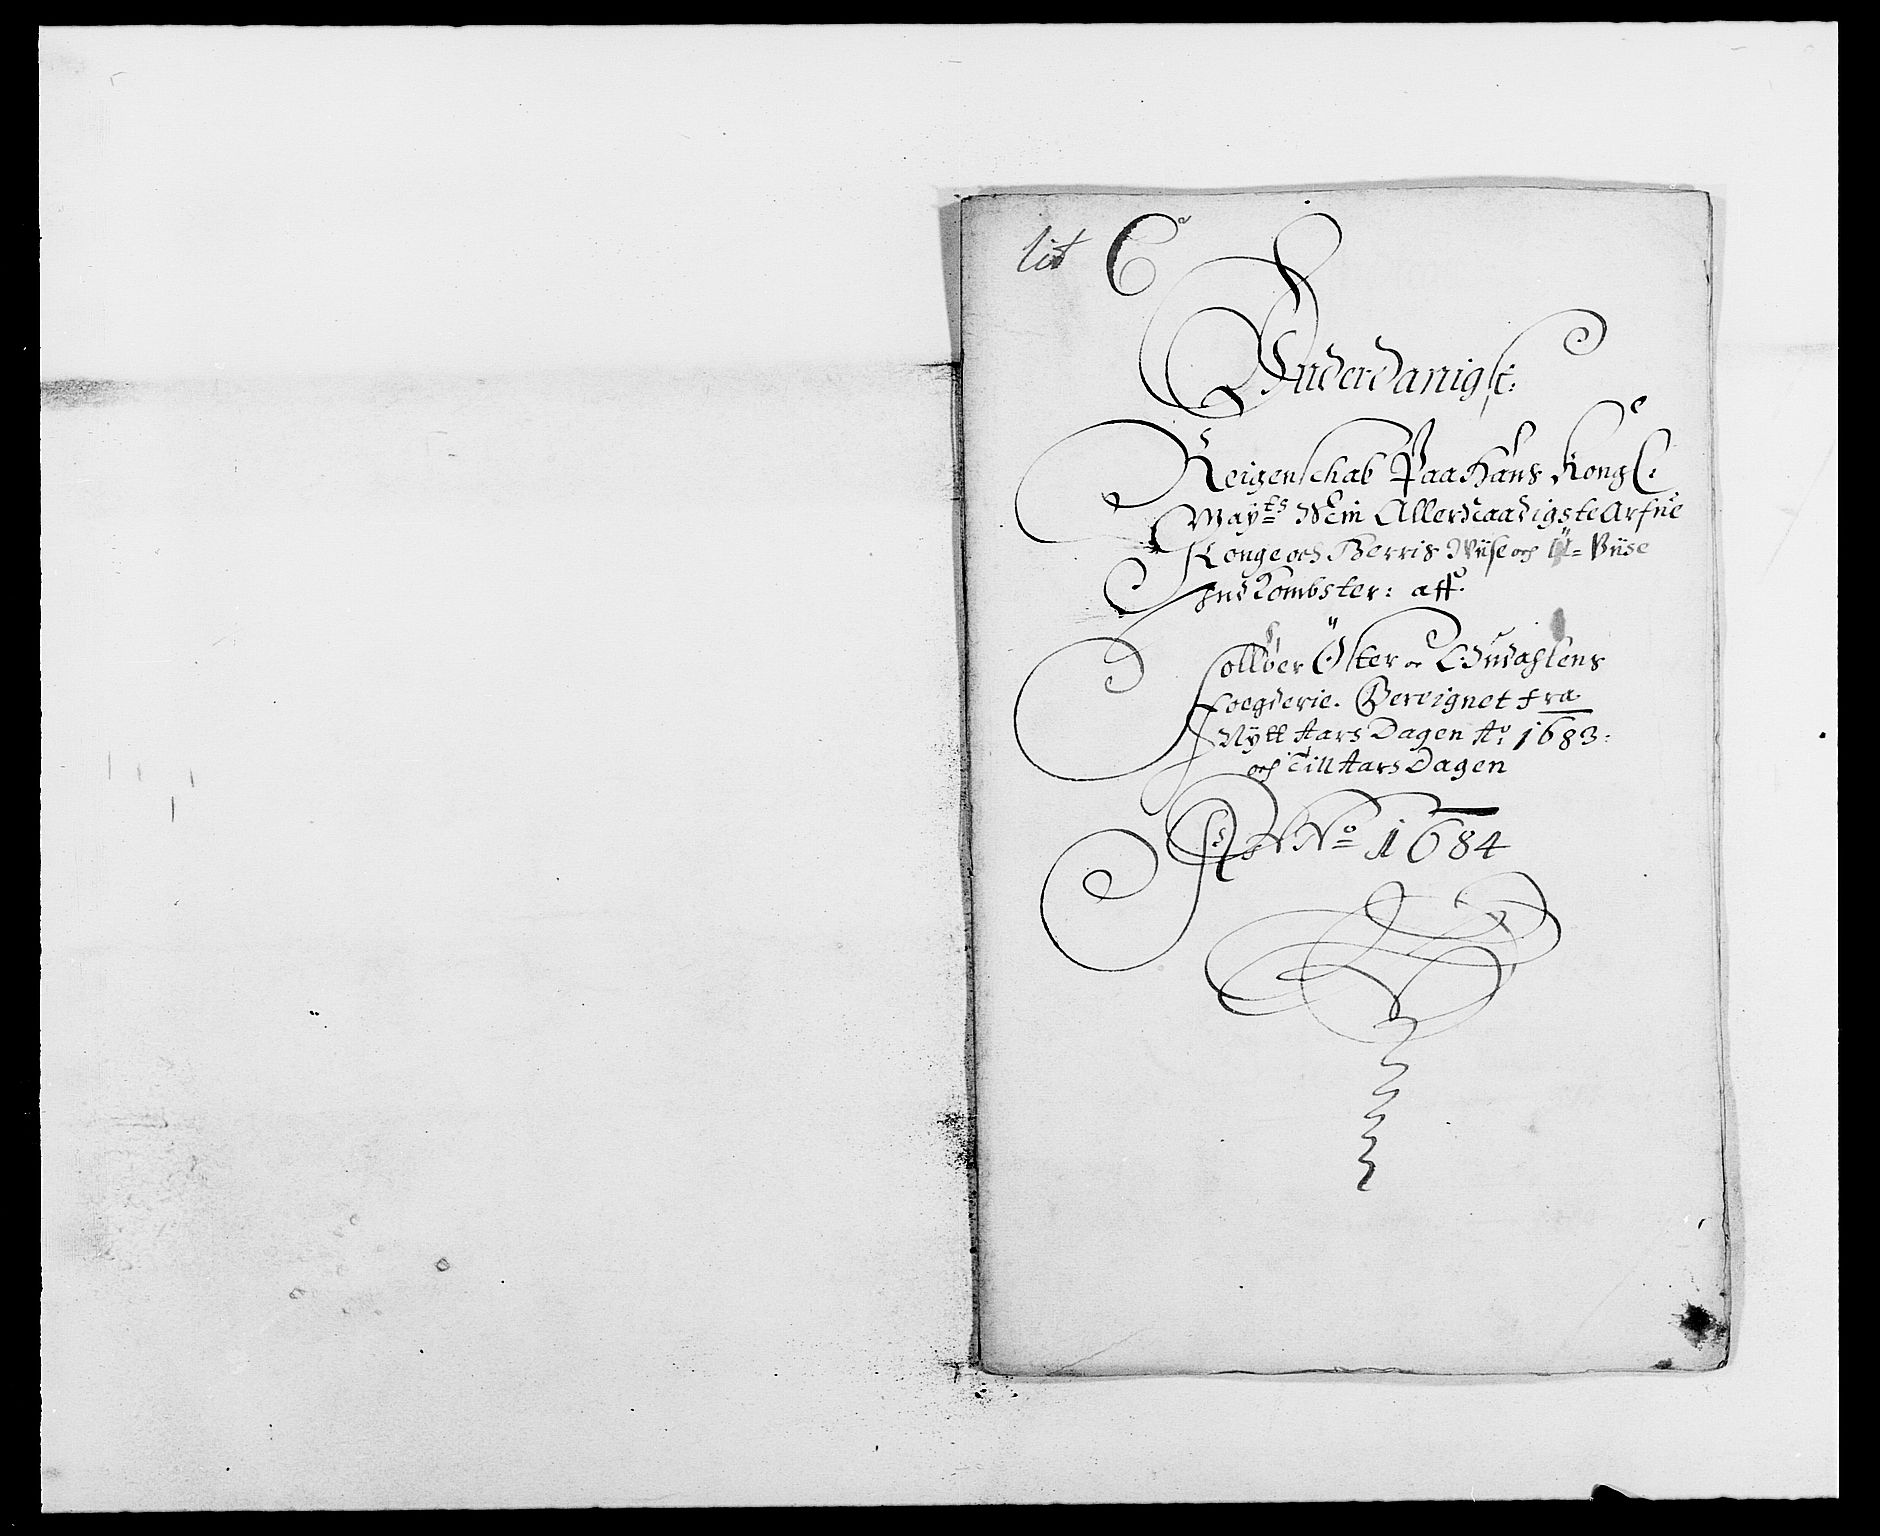 Lit C
Underdanigst:
Reigenschab Paa Hans Kongl:
Mayts Min Allernaadigste Arfue
Konge och Herris Wiise och U= Viise
Indkombster: aff
Solløer Öster oc Oudahlens
Foegderie. Bereignet fra
Nytt Aars Dagen Ao: 1683:
och Till Aars Dagen
Anno 1684